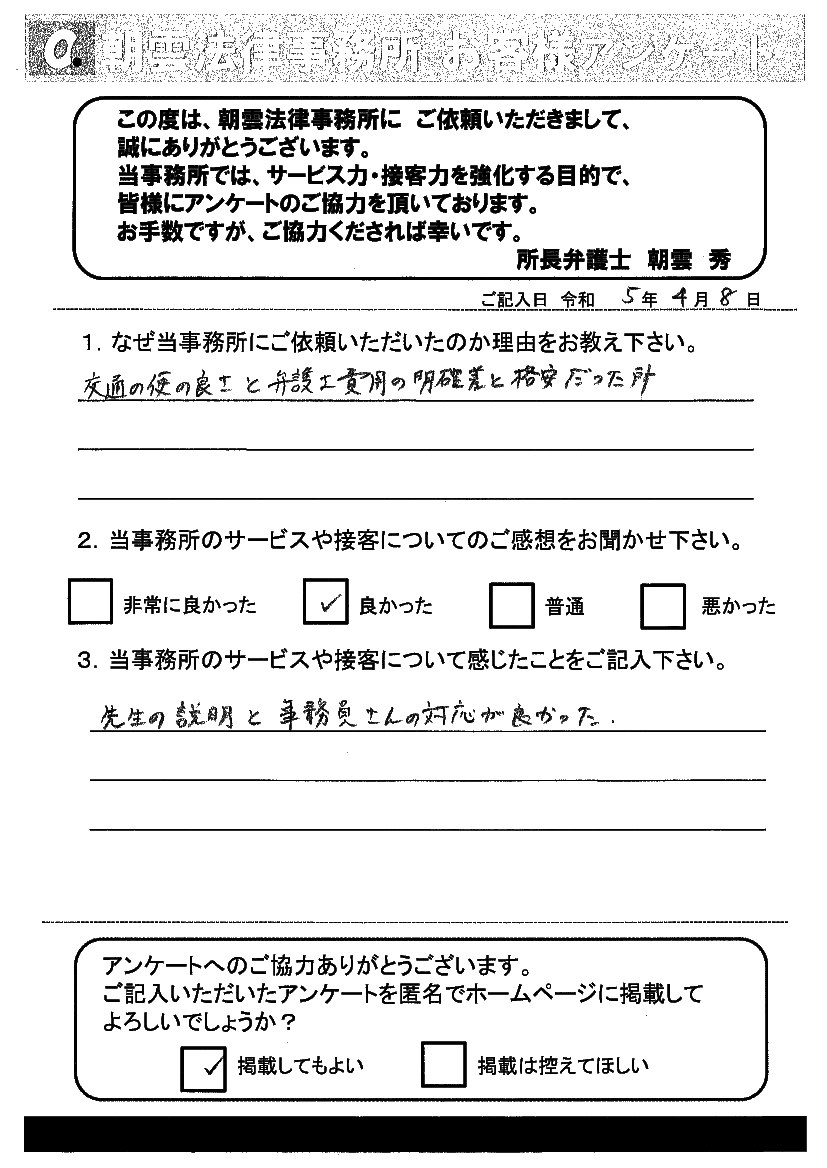 a. 朝雲法律事務所 お客様アンケート
この度は、朝雲法律事務所に ご依頼いただきまして、
誠にありがとうございます。
当事務所では、サービス力・接客力を強化する目的で、
皆様にアンケートのご協力を頂いております。
お手数ですが、ご協力くだされば幸いです。
所長弁護士 朝雲 秀
ご記入日 令和 5年 4月 8日
1. なぜ当事務所にご依頼いただいたのか理由をお教え下さい。
交通の便の良さと弁護士費用の明確差と格安だった所
2. 当事務所のサービスや接客についてのご感想をお聞かせ下さい。
非常に良かった ✓ 良かった 普通 悪かった
3. 当事務所のサービスや接客について感じたことをご記入下さい。
先生の説明と事務員さんの対応が良かった.
アンケートへのご協力ありがとうございます。
ご記入いただいたアンケートを匿名でホームページに掲載して
よろしいでしょうか？
✓ 掲載してもよい 掲載は控えてほしい